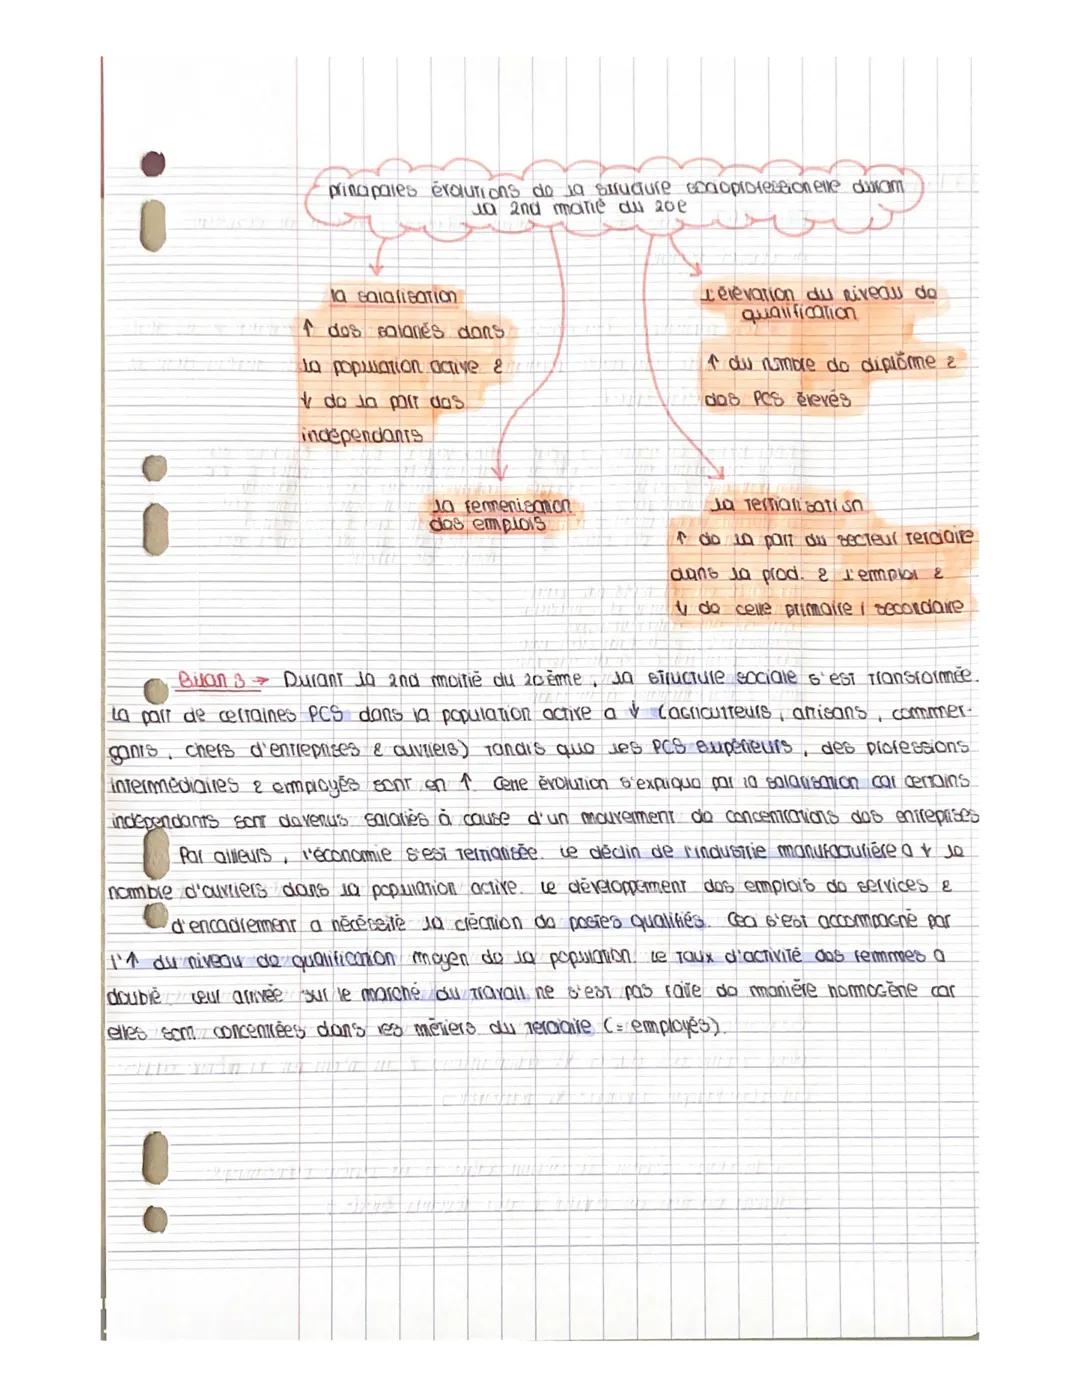 principales évolutions de la structure socioprofessionelle durant
la 2nd moitié du 20e
la salarisation
↑ des salariés dans
la population active &
↓ de la part des
indépendants
L'élévation du niveau de
qualification
↑ du nombre de diplôme &
des PCS élevés
la femenisation
des emplois
la tertiarisation
↑ de la part du secteur terciaire
dans la prod. & l'emploi &
↓ de celle primaire / secondaire
Bilan 3 → Durant la 2nd moitié du 20ème, la structure sociale s'est transformée.
La part de certaines PCS dans la population active a ↓ (agriculteurs, artisans, commer-
çants, chefs d'entreprises & ouvriers) tandis que les PCS supérieurs, des professions
intermédiaires & employés sont en ↑. Cette évolution s'explique par la salarisation car certains
indépendants sont devenus salariés à cause d'un mouvement de concentrations des entreprises
Par ailleurs, l'économie s'est tertiarisée. Le déclin de l'industrie manufacturière a ↓ le
nombre d'ouvriers dans la population active. Le développement des emplois de services &
d'encadrement a nécessité la création de postes qualifiés. Cea s'est accompagné par
l'↑ du niveau de qualification moyen de la population. Le taux d'activité des femmes a
doublé leur arrivée sur le marché du travail ne s'est pas faite de manière homogène car
elles sont concentrées dans les métiers du terciaire (= employés).